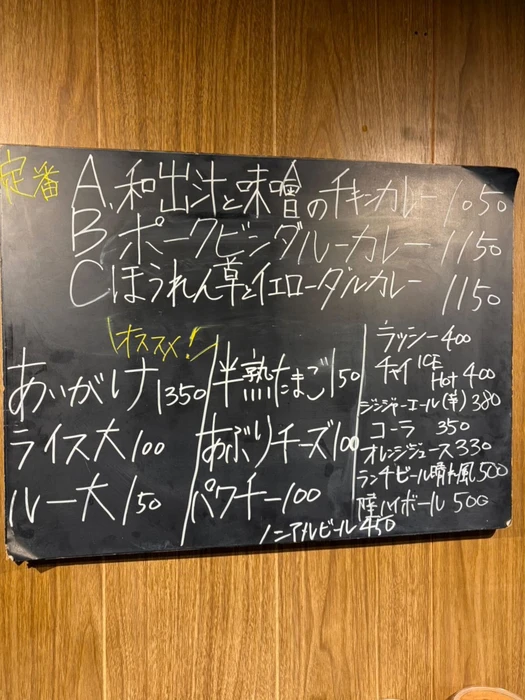 定番
A.和出汁と味噌のチキンカレー 1050
B.ポークビンダルーカレー 1150
C ほうれん草とイエローダルカレー 1150
オススメ!
あいがけ 1350
ライス大 100
ルー大 150
半熟たまご 150
あぶりチーズ 100
パクチー 100
ラッシー 400
チャイ ICE Hot 400
ジンジャーエール(辛) 380
コーラ 350
オレンジジュース 330
ランチビール晴れ風 500
陸ハイボール 500
ノンアルビール 450